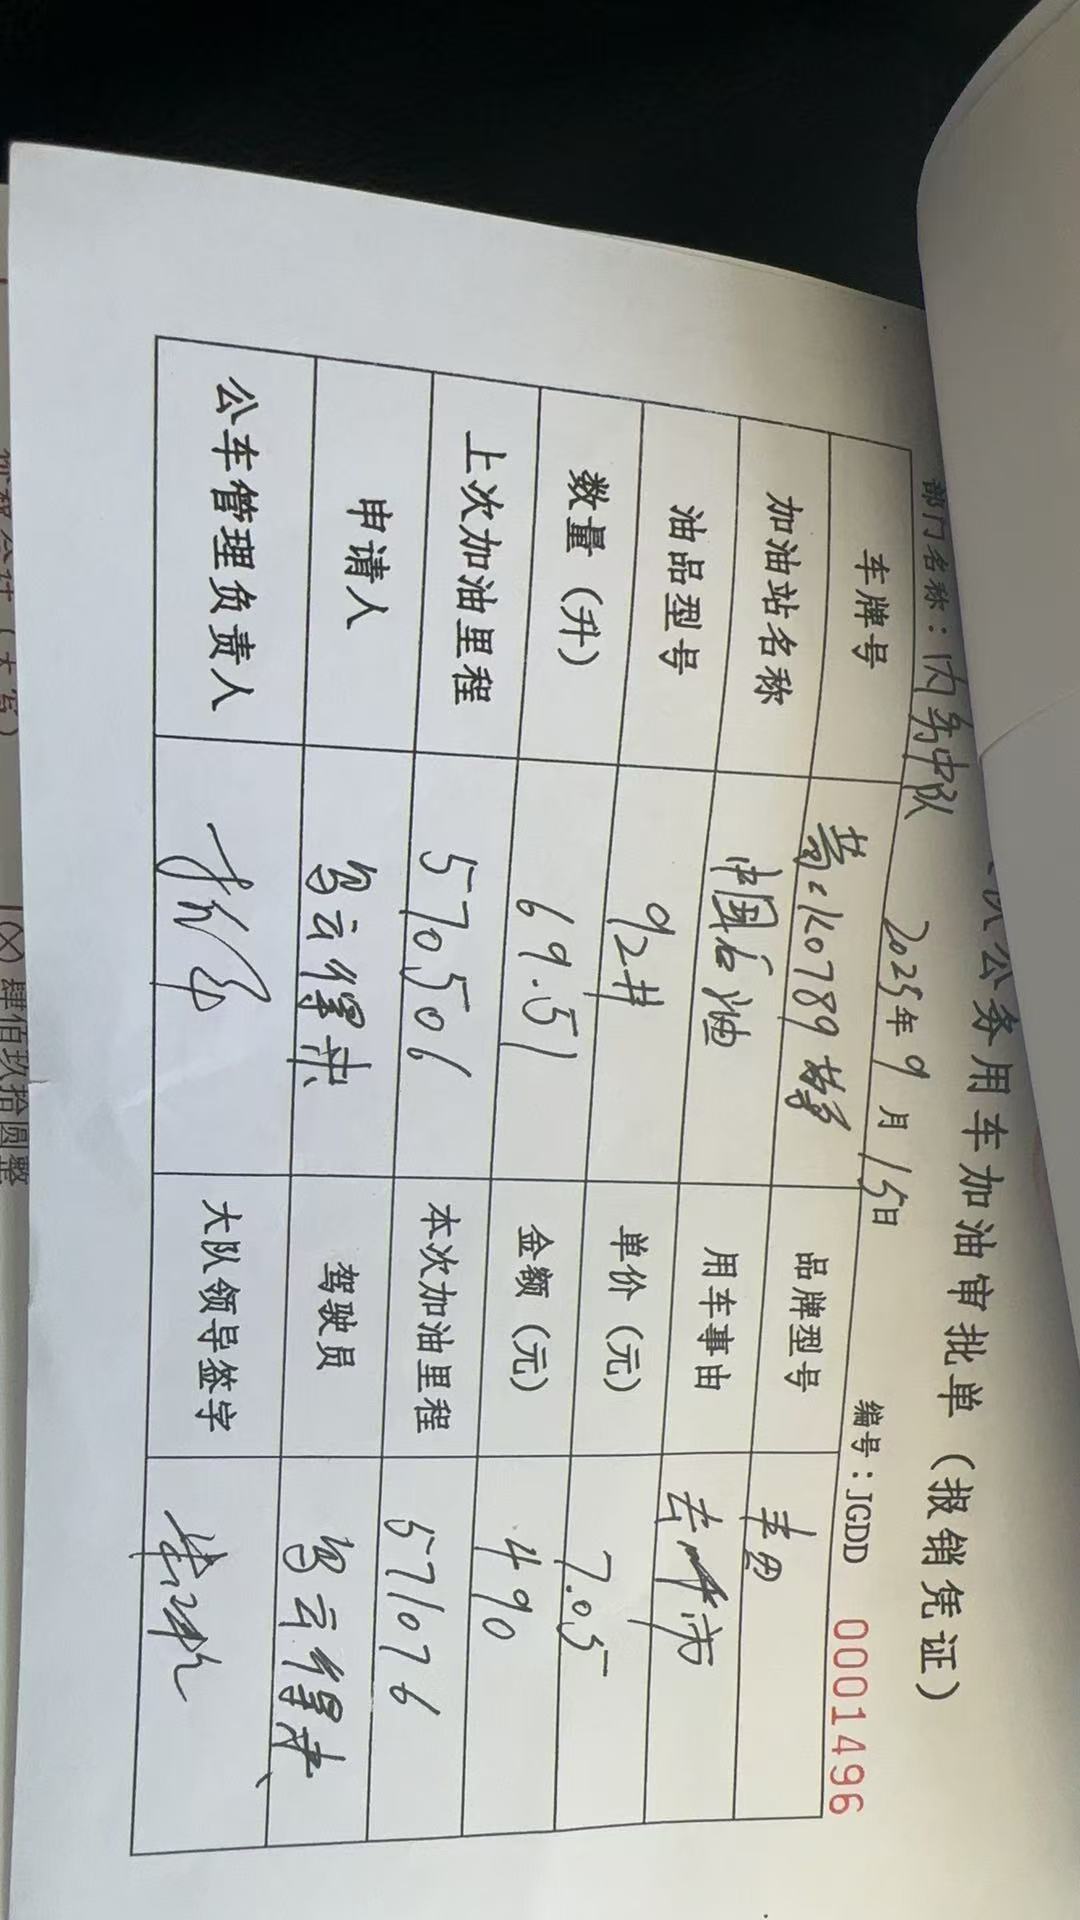 公务用车加油审批单（报销凭证）
部门名称：内务中队 2025年9月15日 编号：JGDD 0001496
车牌号 K0789 品牌型号 丰田
加油站名称 中国石油 用车事由
油品型号 92# 单价（元） 7.05
数量（升） 69.51 金额（元） 490
上次加油里程 570506 本次加油里程 571076
申请人 驾驶员
公车管理负责人 大队领导签字
肆佰玖拾圆整